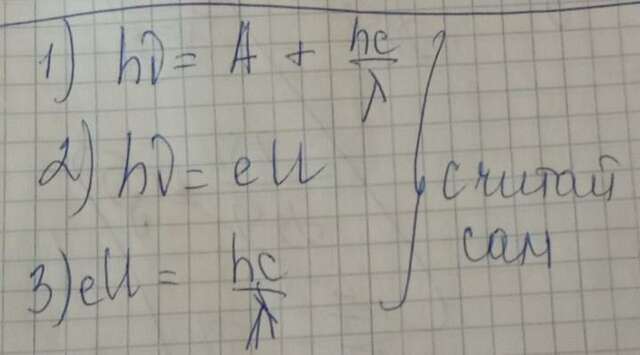 1) hν = A + hc/λ
2) hν = eU
3) eU = hc/λ
считай
сам